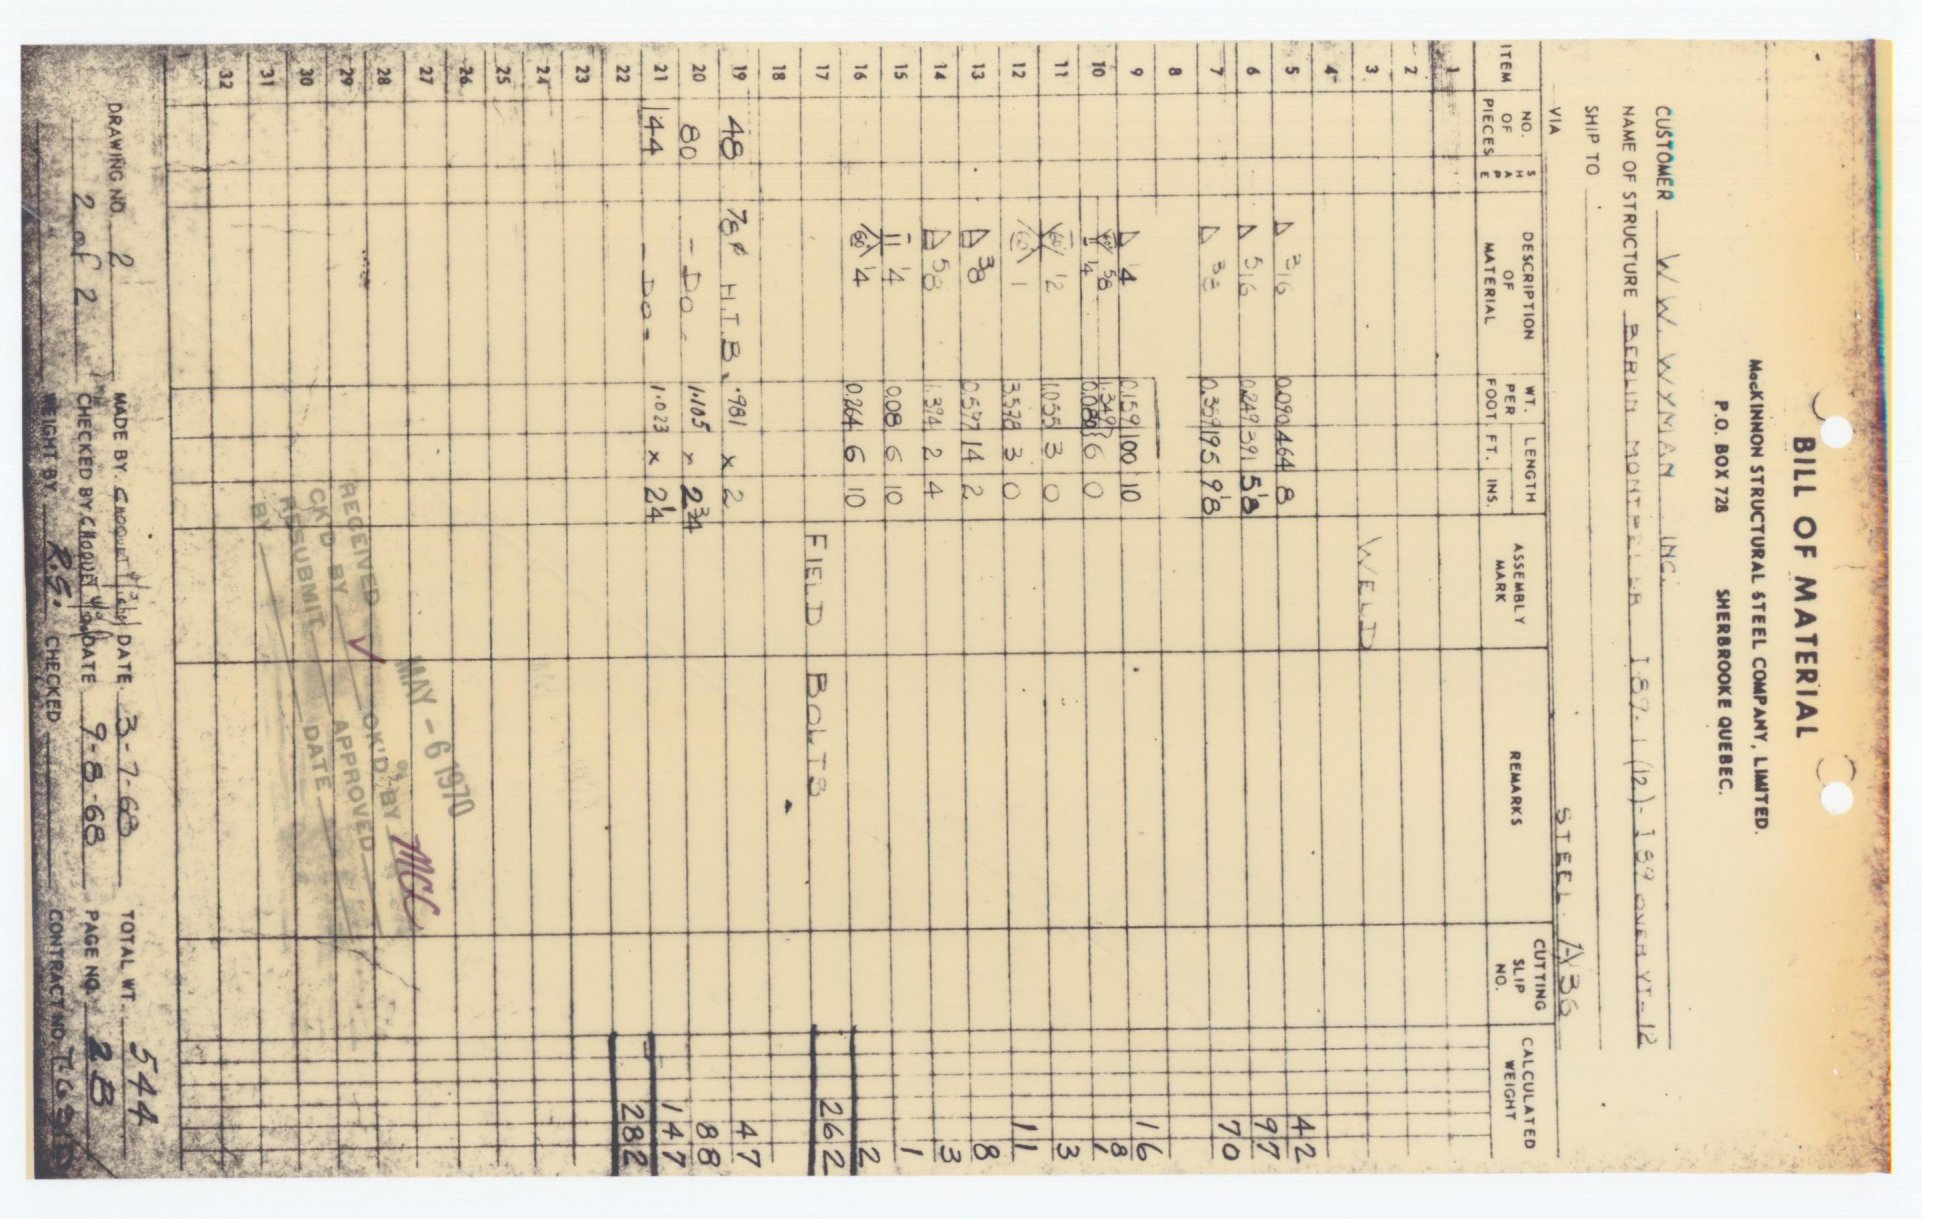 BILL OF MATERIAL
MacKINNON STRUCTURAL STEEL COMPANY, LIMITED.
P.O. BOX 728 SHERBROOKE QUEBEC.
CUSTOMER W. W. WYMAN INC.
NAME OF STRUCTURE BERLIN MONTPELIER I 89-1 (12)- I 89 OVER VT-12
SHIP TO
VIA STEEL A36
ITEM NO. OF PIECES SHAPE DESCRIPTION OF MATERIAL WT. PER FOOT LENGTH FT. INS. ASSEMBLY MARK REMARKS CUTTING SLIP NO. CALCULATED WEIGHT
1
2
3 WELD
4
5 3/16 0.090 464 8 42
6 5/16 0.249 391 5 1/8 97
7 3/8 0.359 195 9 1/8 70
8
9 1/4 0.159 100 10 16
10 60 5/8 1/4 1.349 0.080 6 0 8
11 60 1/2 1.055 3 0 3
12 60 1 3.578 3 0 11
13 3/8 0.597 14 2 8
14 5/8 1.394 2 4 3
15 1/4 0.08 6 10 1
16 60 1/4 0.264 6 10 2
17 FIELD BOLTS 262
18
19 48 7/8 ø H.T.B. .981 x 2 47
20 80 - DO - 1.105 x 2 3/4 88
21 144 - DO - 1.023 x 2 1/4 147
22 282
23
24
25
26
27
28
29
30
31
32
MAY - 6 1970
RECEIVED OK'D BY MCC
CK'D BY APPROVED
RESUBMIT DATE
BY
DRAWING NO. 2 MADE BY. CROQUET DATE 3-7-68 TOTAL WT. 544
2 of 2 CHECKED BY CROQUET DATE 9-8-68 PAGE NO. 2B
WEIGHT BY. R.G. CHECKED CONTRACT NO.